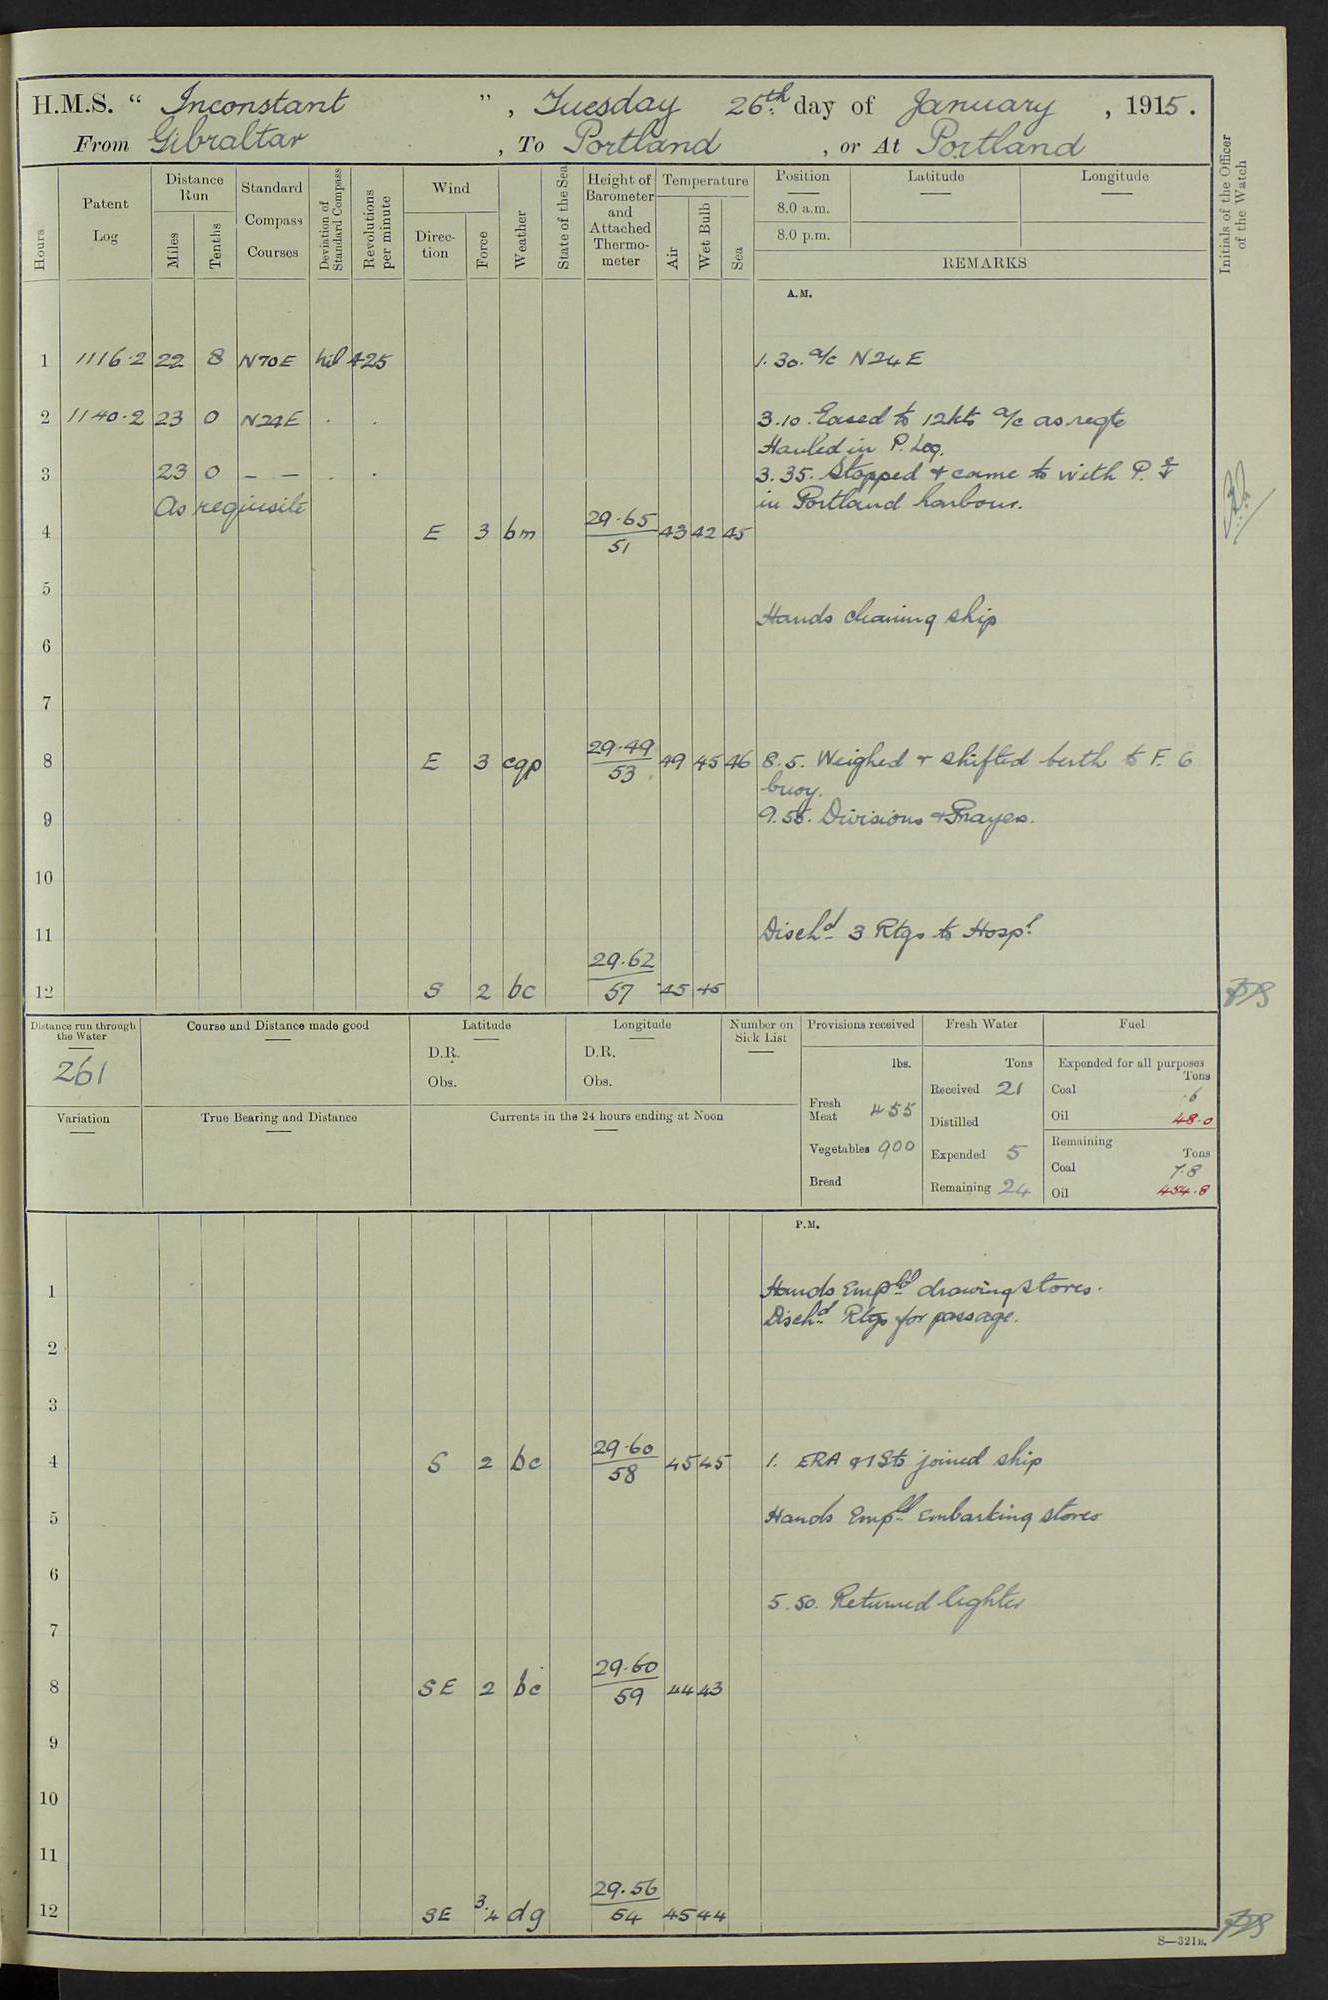 H.M.S. “ Inconstant ”, Tuesday 26th day of January , 1915.
From Gibraltar , To Portland , or At Portland
Hours
Patent Log
Distance Run
Miles
Tenths
Standard Compass Courses
Deviation of Standard Compass
Revolutions per minute
Wind
Direc-tion
Force
Weather
State of the Sea
Height of Barometer and Attached Thermo-meter
Temperature
Air
Wet Bulb
Sea
Position
8.0 a.m.
8.0 p.m.
Latitude
Longitude
REMARKS
Initials of the Officer of the Watch
A.M.
1 1116·2 22 8 N70E Nil 425 1.30. a/c N24E
2 1140·2 23 0 N24E . . 3.10. Eased to 12kts a/c as reqte
Hauled in P. Log.
3 23 0 — — . . 3.35. Stopped & came to with P. ⚓
As requisite in Portland harbour.
4 E 3 bm 29·65 51 43 42 45
5
Hands cleaning ship
6
7
8 E 3 cqp 29·49 53 49 45 46 8.5. Weighed & shifted berth to F. 6
buoy.
9 9.55. Divisions & Prayers.
10
11 Dischd 3 Rtgs to Hospl
12 S 2 bc 29.62 57 45 45
Distance run through the Water
261
Course and Distance made good
Latitude
D.R.
Obs.
Longitude
D.R.
Obs.
Number on Sick List
Provisions received
lbs.
Fresh Meat 455
Vegetables 900
Bread
Fresh Water
Tons
Received 21
Distilled
Expended 5
Remaining 24
Fuel
Expended for all purposes
Tons
Coal ·6
Oil 48·0
Remaining
Tons
Coal 7·8
Oil 454·8
Variation
True Bearing and Distance
Currents in the 24 hours ending at Noon
P.M.
1 Hands Empld drawing stores.
Dischd Rtgs for passage.
2
3
4 S 2 bc 29·60 58 45 45 1. ERA & 1 Sto joined ship
5 Hands Empld embarking stores
6
5.50. Returned lighter
7
8 SE 2 bc 29·60 59 44 43
9
10
11
12 SE 3.4 dg 29.56 54 45 44
S—321B.